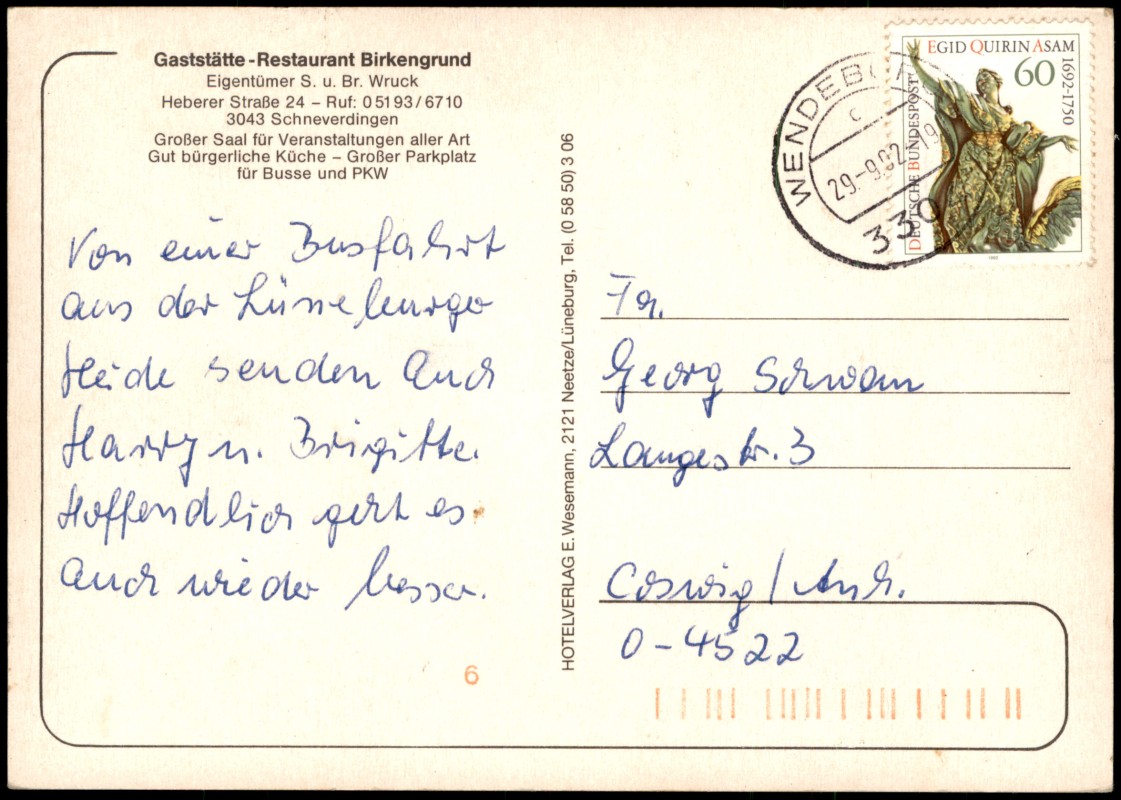 Gaststätte-Restaurant Birkengrund
Eigentümer S. u. Br. Wruck
Heberer Straße 24 – Ruf: 05193/6710
3043 Schneverdingen
Großer Saal für Veranstaltungen aller Art
Gut bürgerliche Küche – Großer Parkplatz
für Busse und PKW
Von einer Busfahrt
aus der Lüneburger
Heide senden Euch
Harry u. Brigitte.
Hoffendlich geht es
Euch wieder besser.
6
HOTELVERLAG E. Wesemann, 2121 Neetze/Lüneburg, Tel. (0 58 50) 3 06
EGID QUIRIN ASAM
1692-1750
60
DEUTSCHE BUNDESPOST
1992
c
29-9.92-19
330
Georg Schwam
Langestr. 3
Coswig / Anh.
O-4522